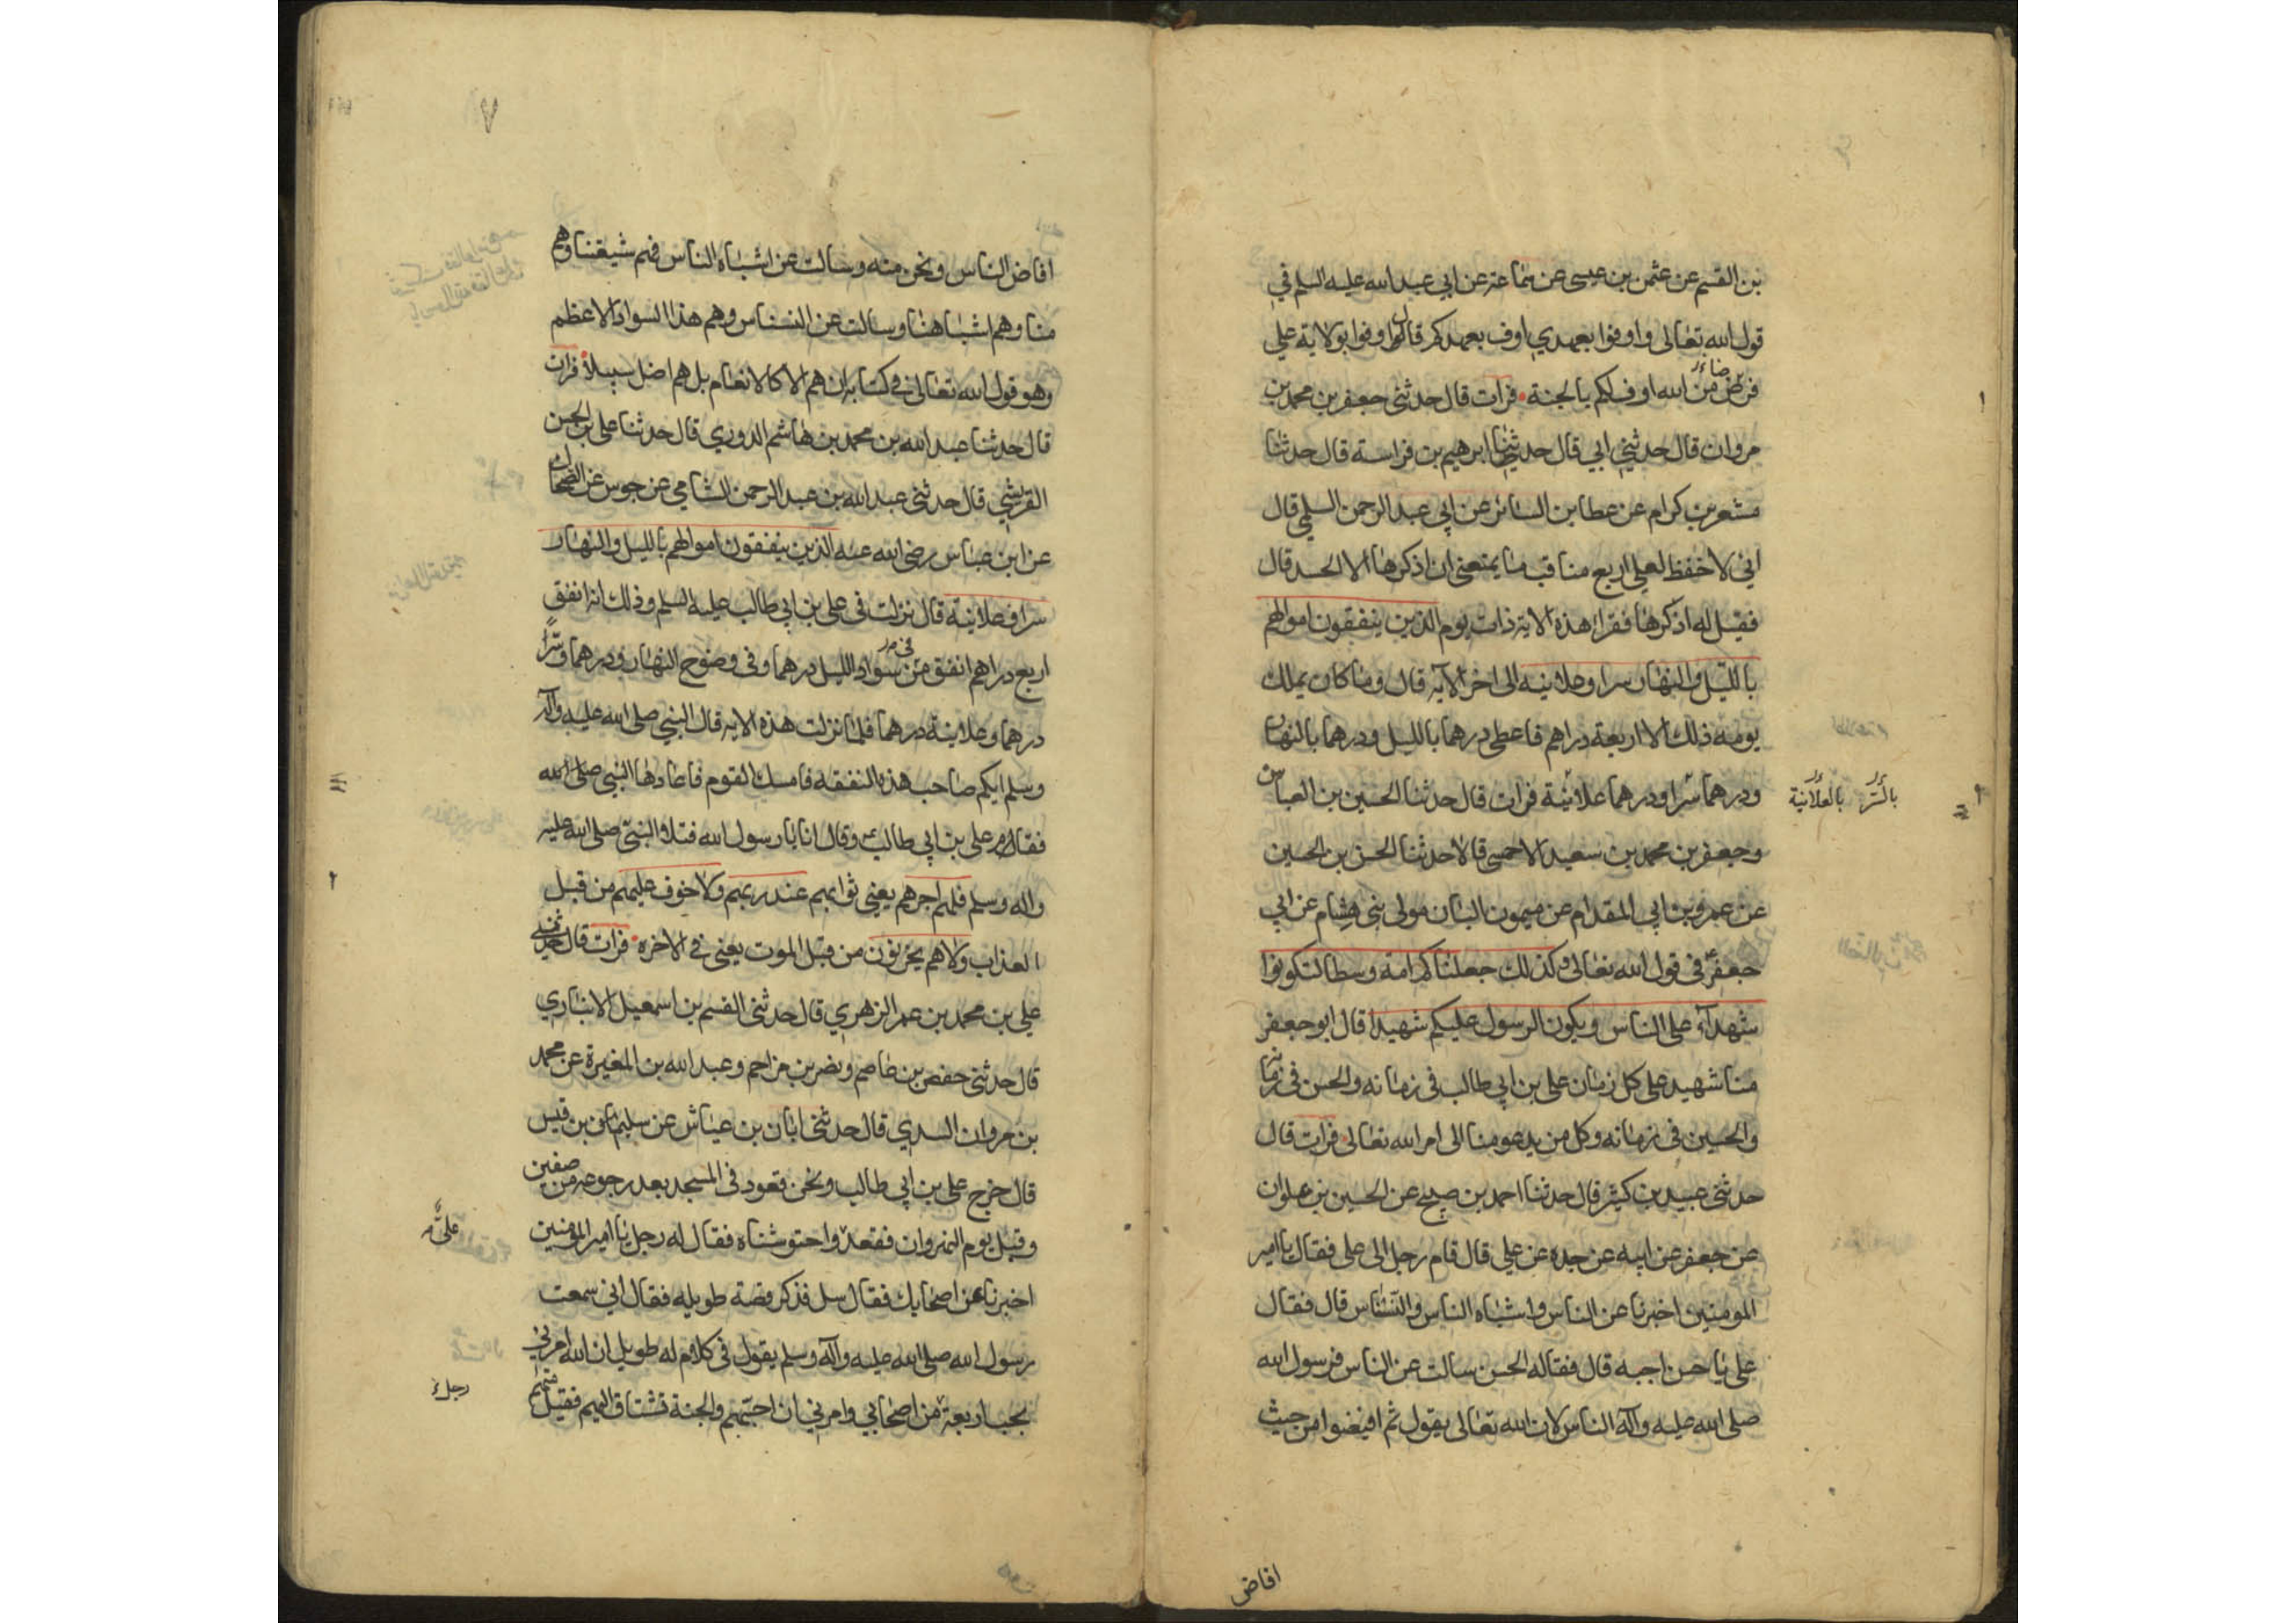 بن القسم عن عثمن بن عيسى عن سماعة عن ابي عبد الله عليه السلم في
قول الله تعالى واوفوا بعهدي اوف بعهدكم قال اوفوا بولاية علي
فرض من الله اوف لكم بالجنة فرات قال حدثني جعفر بن محمد بن
مروان قال حدثني ابي قال حدثنا ابرهيم بن فراسة قال حدثنا
مسعر بن كرام عن عطا بن السائب عن ابي عبد الرحمن السلمي قال
اني لاحفظ لعلي اربع مناقب ما يمنعني ان اذكرها الا الحسد قال
فقيل له اذكرها فقرا هذه الاية ذات يوم الذين ينفقون اموالهم
بالليل والنهار سرا وعلانية الى اخر الآية قال وما كان يملك
يومه ذلك الا اربعة دراهم فاعطى درهما بالليل ودرهما بالنهار
ودرهما سرا ودرهما علانية فرات قال حدثنا الحسين بن العباس
بالسر بالعلانية
وجعفر بن محمد بن سعيد الاحمسي قالا حدثنا الحسن بن الحسين
عن عمرو بن ابي المقدام عن ميمون البان مولى بني هشام عن ابي
جعفر في قول الله تعالى وكذلك جعلناكم امة وسطا لتكونوا
شهدآء على الناس ويكون الرسول عليكم شهيدا قال ابو جعفر
منا شهيد على كل زمان علي بن ابي طالب في زمانه والحسن في زمانه
والحسين في زمانه وكل من يدعو منا الى امر الله تعالى فرات قال
حدثني عبيد بن كثير قال حدثنا احمد بن صبيح عن الحسين بن علوان
عن جعفر عن ابيه عن جده عن علي قال قام رجل الى علي فقال يا امير
المومنين اخبرنا عن الناس واشباه الناس والنسناس قال فقال
علي يا حسن اجبه قال فقال له الحسن سالت عن الناس فرسول الله
صلى الله عليه وآله الناس لان الله تعالى يقول ثم افيضوا من حيث
افاض
٧
افاض الناس ونحن منه وسالت عن اشباه الناس فهم شيعتنا وهم
منا وهم اشباهنا وسالت عن النسناس وهم هذا السواد الاعظم
وهو قول الله تعالى في كتابه ان هم الا كالانعام بل هم اضل سبيلا فرات
قال حدثنا عبد الله بن محمد بن هاشم الدوري قال حدثنا علي بن الحسن
القرشي قال حدثني عبد الله بن عبد الرحمن الشامي عن جوس عن الضحاك
عن ابن عباس رضي الله عنه الذين ينفقون اموالهم بالليل والنهار
سرا وعلانية قال نزلت في علي بن ابي طالب عليه السلم وذلك انه انفق
اربع دراهم انفق في سواد الليل درهما وفي وضوح النهار ودرهما وسرًّا
درهما وعلانية درهما فلما نزلت هذه الاية قال النبي صلى الله عليه وآله
وسلم ايكم صاحب هذه النفقة فامسك القوم فاعادها النبي صلى الله
فقام علي بن ابي طالب وقال انا يا رسول الله فتلا النبي صلى الله عليه
واله وسلم فلهم اجرهم يعني ثوابهم عند ربهم ولا خوف عليهم من قبل
العذاب ولا هم يحزنون من قبل الموت يعني في الاخره فرات قال حدثني
علي بن محمد بن عمر الزهري قال حدثني القسم بن اسمعيل الانباري
قال حدثني حفص بن عاصم ونصر بن مزاحم وعبد الله بن المغيرة عن محمد
بن مروان السدي قال حدثني ابان بن عياش عن سليم بن قيس
قال خرج علي بن ابي طالب ونحن قعود في المسجد بعد رجوعه من صفين
وقبل يوم النهروان فقعد واحتوشناه فقال له رجل يا امير المؤمنين
علي
اخبرنا عن اصحابك فقال سل فذكر قصة طويله فقال اني سمعت
رسول الله صلى الله عليه وآله وسلم يقول في كلام له طويل ان الله امرني
بحب اربعة من اصحابي وامرني ان احبهم والجنة تشتاق اليهم فقيل منهم
رجل